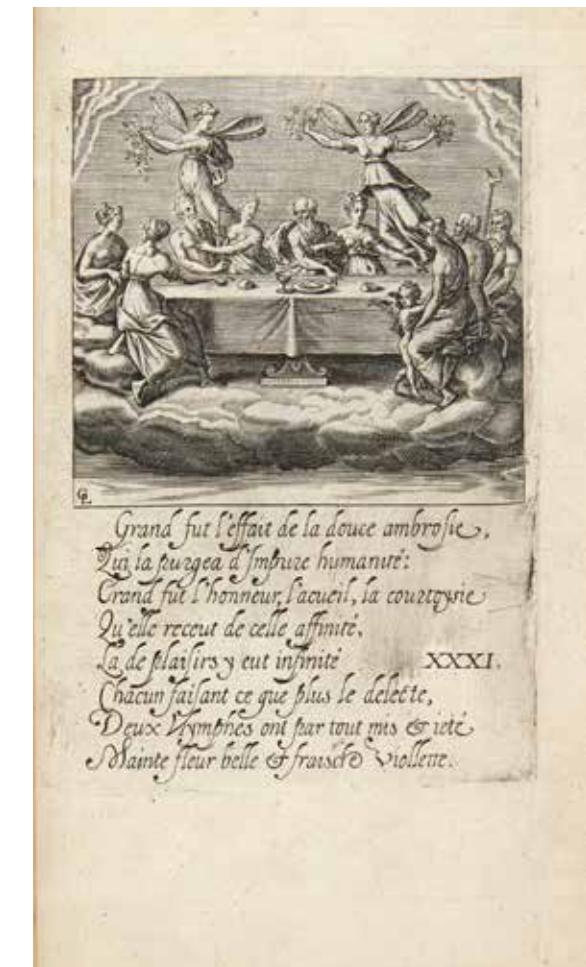 GL
Grand fut l'effait de la douce ambrosie,
Qui la purgea d'Impure humanité:
Grand fut l'honneur, l'acueil, la courtoysie
Qu'elle receut de celle affinité.
La de plaisirs y eut infinité XXXI.
Chacun faisant ce que plus le delecte,
Deux Nymphes ont par tout mis & ieté
Mainte fleur belle & fraische viollette.